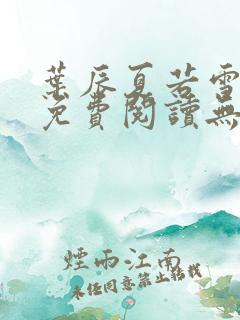 葉辰夏若雪
免費閱讀無
煙雨江南
未任同意禁止搭載